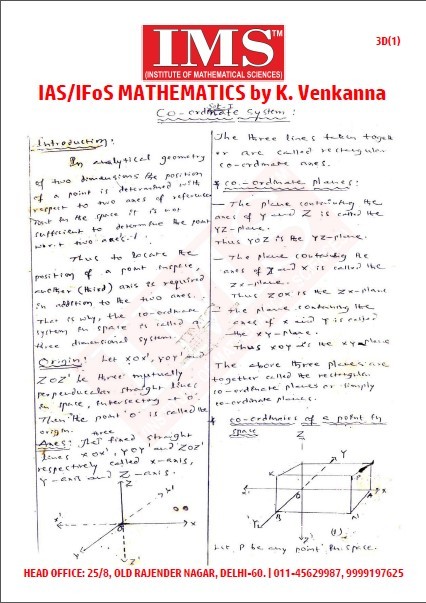 3D(1)
IMS™
(INSTITUTE OF MATHEMATICAL SCIENCES)
IAS/IFoS MATHEMATICS by K. Venkanna
Set-I
Co-ordinate System:
Introduction:
In analytical geometry
of two dimensions the position
of a point is determined with
respect to two axes of reference
but in the space it is not
sufficient to determine the point
w.r.t two axes.
Thus to locate the
position of a point inspace,
another (third) axis is required
in addition to the two axes.
That is why, the co-ordinate
system in space is called a
three dimensional system.
Origin: Let XOX', YOY' and
ZOZ' be three mutually
perpendicular straight lines
in space, intersecting at 'O'.
Then the point 'O' is called the
origin.
Axes: The three fixed straight
lines XOX', YOY' and ZOZ'
respectively called x-axis,
Y-axis and Z-axis.
Z
Y'
X'
O
X
Y
Z'
The three lines taken togeth
er are called rectangular
co-ordinate axes.
* co-ordinate planes:
- The plane containing the
axes of Y and Z is called the
YZ-plane.
Thus YOZ is the YZ-plane.
- The plane containing the
axes of Z and X is called the
ZX-plane.
Thus ZOX is the ZX-plane
- The plane containing the
axes of X and Y is called
the XY-plane.
Thus XOY is the XY plane
The above three planes are
together called the rectangular
co-ordinate planes or simply
co-ordinate planes.
* co-ordinates of a point in
space
Z
Y
C
O
A
X
B
Y'
N
(1)
Let P be any point in space.
HEAD OFFICE: 25/8, OLD RAJENDER NAGAR, DELHI-60. | 011-45629987, 9999197625